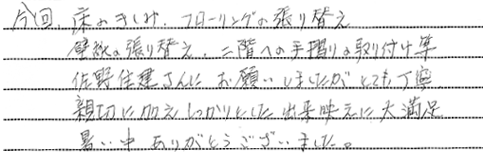 今回、床のきしみ、フローリングの張り替え
壁紙の張り替え、二階への手摺りの取り付け等
佐野住建さんにお願いしましたがとても丁寧
親切に加えしっかりとした出来映えに大満足
暑い中ありがとうございました。